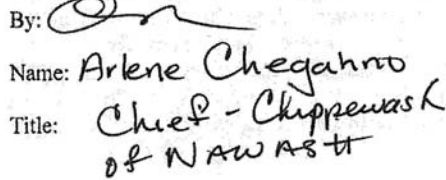 By:
Name: Arlene Chegahno
Title: Chief - Chippewas
of NAWASH